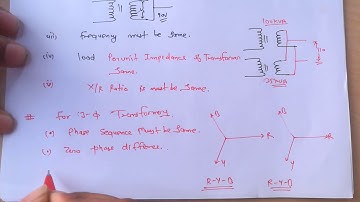 100kVA
iii) frequency must be same.
(iv) Load Per unit Impedance of Transformer
Same.
25kVA
(v) X/R Ratio is must be Same.
# For 3-ɸ Transformers
(•) Phase Sequence Must be Same.
(•) Zero phase differenc.
B
R
Y
B
R
Y
R-Y-B
R-Y-B